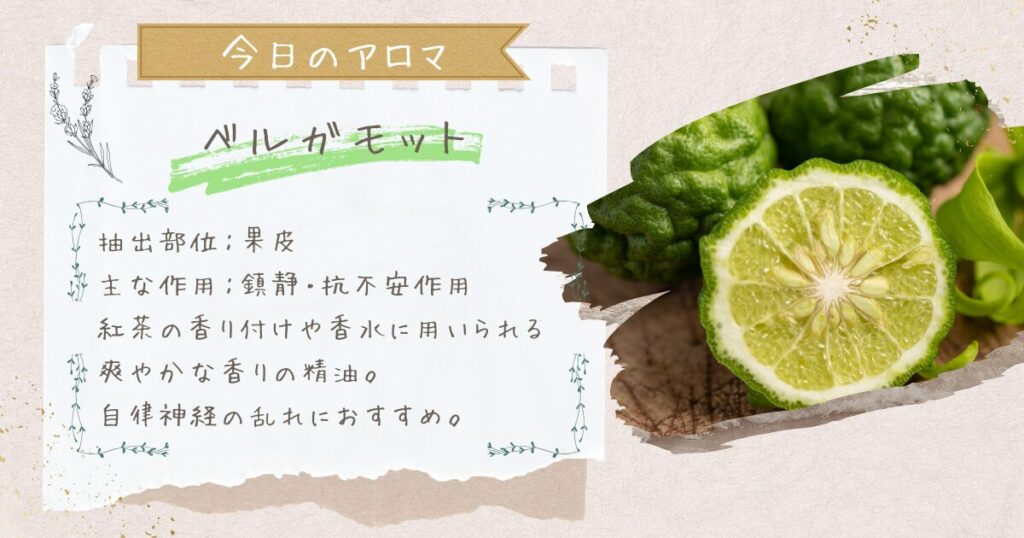 今日のアロマ
ベルガモット
抽出部位;果皮
主な作用;鎮静・抗不安作用
紅茶の香り付けや香水に用いられる
爽やかな香りの精油。
自律神経の乱れにおすすめ。